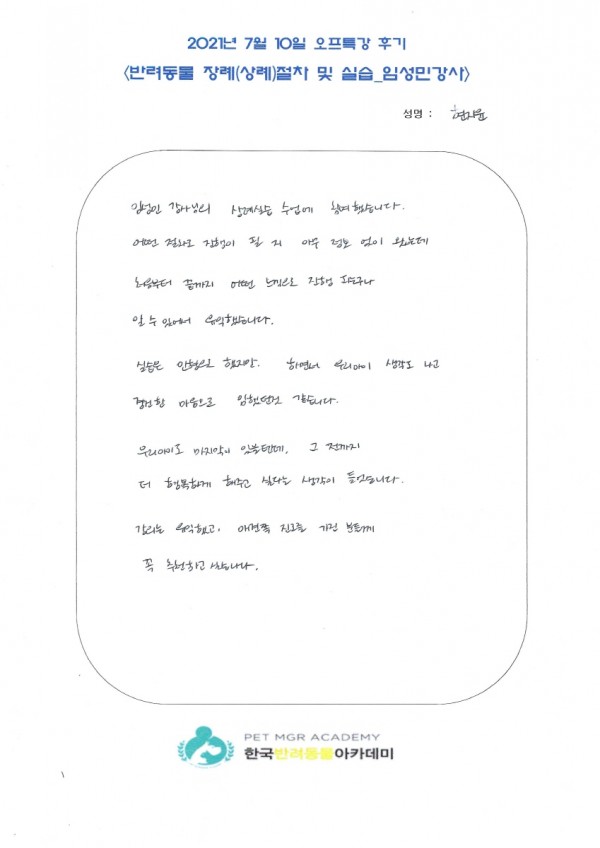 2021년 7월 10일 오프특강 후기
<반려동물 장례(상례)절차 및 실습_임성민강사>
성명 : 현지윤
임성민 강사님의 상례실습 수업에 참여했습니다.
어떤 절차로 진행이 될 지 아무 정보 없이 왔는데
처음부터 끝까지 어떤 느낌으로 진행 되는구나
알 수 있어서 유익했습니다.
실습은 인형으로 했지만, 하면서 우리아이 생각도 나고
경건한 마음으로 임했던것 같습니다.
우리아이도 마지막이 있을텐데, 그 전까지
더 행복하게 해주고 싶다는 생각이 들었습니다.
강의는 유익했고, 애견쪽 진로를 가진 분들께
꼭 추천하고 싶습니다.
PET MGR ACADEMY
한국반려동물아카데미